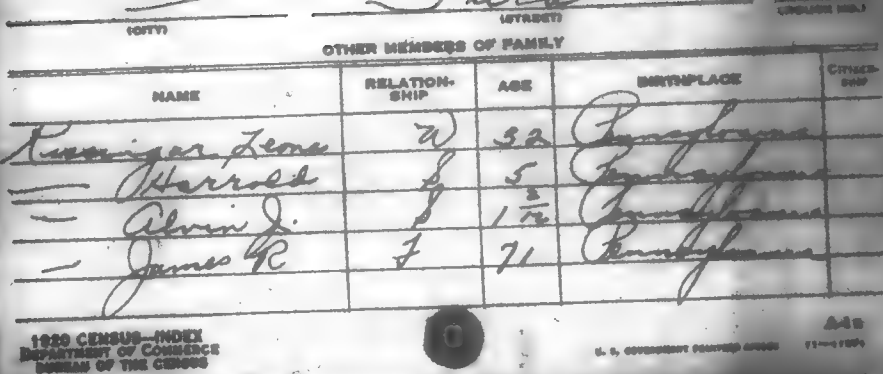 (CITY) (STREET) (HOUSE NO.)
OTHER MEMBERS OF FAMILY
NAME RELATION-SHIP AGE BIRTHPLACE CITIZEN-SHIP
Leone W 32 Pennsylvania
— Harrold S 5 Pennsylvania
— Alvin J. S 1 2/12 Pennsylvania
— James R F 71 Pennsylvania
1920 CENSUS—INDEX
DEPARTMENT OF COMMERCE
BUREAU OF THE CENSUS
U. S. GOVERNMENT PRINTING OFFICE